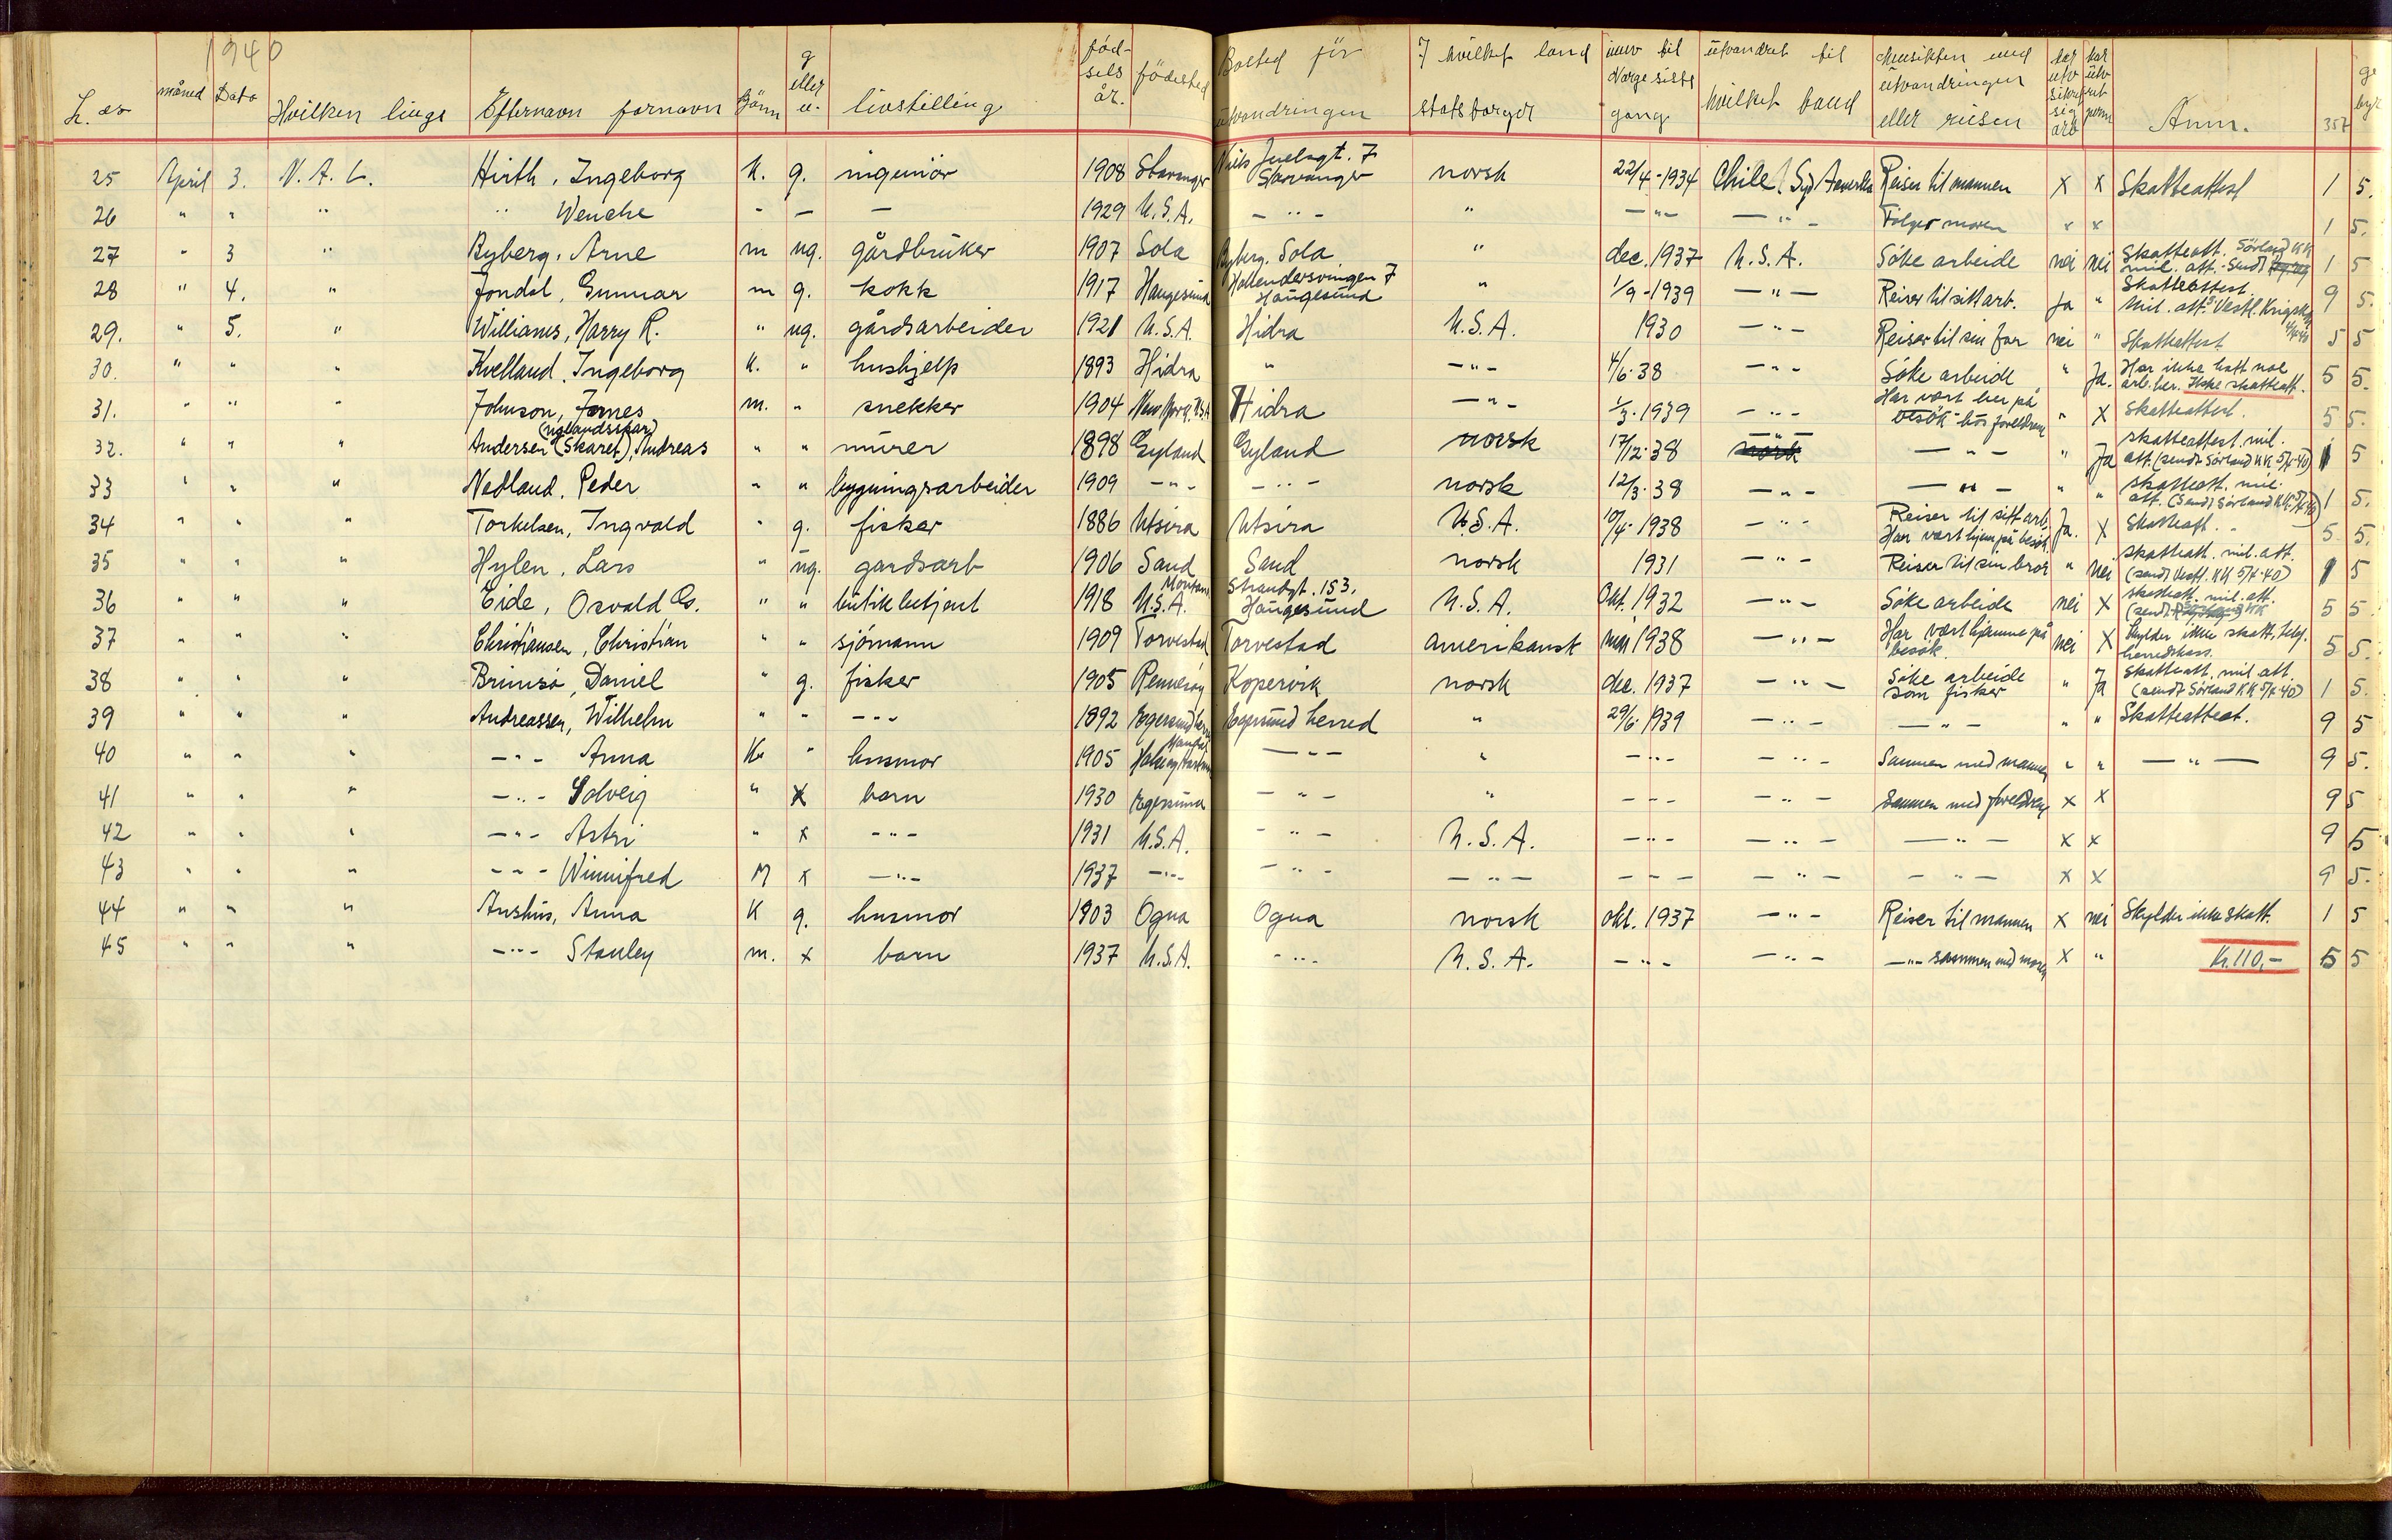 1940
L. nr måned Dato Hvilken linge Efternavn fornavn Kjönn g eller u. livstilling föd-sels år. födested Bosted för utvandringen I hvilket land statsborger innv til Norge siste gang utvandret til hvilket land Hensikten med utvandringen eller reisen har utv sikret sig arb har utv ret penn Anm. 357
25 April 3. N. A. L. Hirth, Ingeborg K. g. ingeniör 1908 Stavanger Niels Juelsgt. 7 Stavanger norsk 22/4-1934 Chile (Syd Amerika Reiser til mannen x x Skatteattest 1 5.
26 " " " " Wenche - - - 1929 U.S.A. - " - " - " - - " - Følger moren x x 1 5.
27 " 3 " Byberg, Arne m ug. gårdbruker 1907 Sola Byberg, Sola " dec. 1937 U.S.A. Söke arbeide nei nei Skatteatt. Sörland KK mil. att. - Sendt 1 5
28 " 4. " Jondal, Gunnar m g. kokk 1917 Haugesund Hollendersvingen 7 Haugesund " 1/9-1939 - " - Reiser til sitt arb. Ja " Skatteattest. Mil. att. Vestl. Krigsk. 9 5.
29. " 5. " Williams, Harry R. " ug. gårdsarbeider 1921 U.S.A. Hidra U.S.A. 1930 - " - Reiser til sin far nei " Skatteattest 5 5
30. " " " Kvelland, Ingeborg K. " hushjelp 1893 Hidra " - " - 4/6-38 - " - Söke arbeide " Ja. Har ikke hatt noe arb. her. Ikke skatteatt. 5 5.
31. " " " Johnson, James m. " snekker 1904 New York. U.S.A Hidra - " - 1/3-1939 - " - Har vært her på besök hos foreldrene " X Skatteattest. 5 5.
32. " " " Andersen (Skaret), Andreas " " murer 1898 Gyland Gyland norsk 17/12-38 - " - - " - " Ja skatteattest mil. att. (sendt Sörland KK 5/4-40) 1 5
33 " " " Nedland, Peder " " bygningsarbeider 1909 - " - - " - norsk 12/3-38 - " - - " - " " skatteatt. mil. att. (Sendt Sörland KK 5/4-40) 1 5.
34 " " " Torkelsen, Ingvald " g. fisker 1886 Utsira Utsira U.S.A. 10/4-1938 - " - Reiser til sitt arb. Har vært hjem på besök. Ja. X Skatteatt. - 5 5.
35 " " " Hylen, Lars " ug. gardsarb 1906 Sand Sand norsk 1931 - " - Reiser til sin bror " nei Skatteatt. mil. att. (sendt Vestl. KK 5/4-40) 1 5
36 " " " Eide, Osvald Os. " " butikbetjent 1918 Montana U.S.A. Strandgt. 153, Haugesund U.S.A. Okt. 1932 - " - Söke arbeide nei X skatteatt. mil. att. (sendt KK 5 5
37 " " " Christiansen, Christian " " sjömann 1909 Torvestad Torvestad amerikansk mai 1938 - " - Har vært hjemme på besök nei X Skylder ikke skatt, telef. herredskass. 5 5.
38 " " " Brimsö, Daniel " g. fisker 1905 Rennesöy Kopervik norsk dec. 1937 - " - Söke arbeide som fisker " Ja Skatteatt. mil. att. (sendt Sörland KK 5/4-40) 1 5.
39 " " " Andreassen, Wilhelm " " - " - 1892 Egersund herred Egersund herred " 29/6-1939 - " - - " - " " Skatteattest. 9 5
40 " " " - " - Anna K. " husmor 1905 - " - " - " - - " - Sammen med mannen " " - " - 9 5.
41 " " " - " - Solveig " x barn 1930 Egersund - " - " - " - - " - Sammen med foreldrene x x 9 5
42 " " " - " - Astri " x - " - 1931 U.S.A. - " - U.S.A. - " - - " - - " - x x 9 5
43 " " " - " - Winnifred M x - " - 1937 - " - - " - - " - - " - - " - - " - x x 9 5.
44 " " " Aushus, Anna K g. husmor 1903 Ogna Ogna norsk okt. 1937 - " - Reiser til mannen x nei Skylder ikke skatt. 1 5
45 " " " - " - Stanley m. x barn 1937 U.S.A. - " - U.S.A. - " - - " - - " - sammen med moren x " Kr. 110,- 5 5